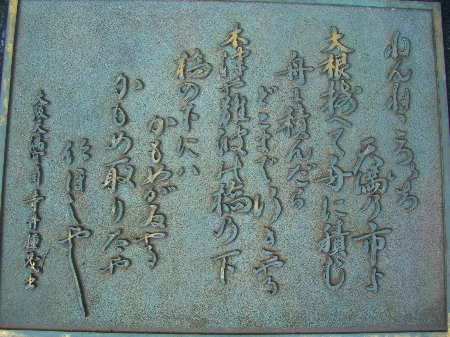 ねんねころいち
天満の市よ
大根揃へて舟に積む
舟に積んだら
どこまで行きやる
木津や難波の橋の下
橋の下には
かもめが居やる
かもめ取りたや
ほしや
寺井種茂書